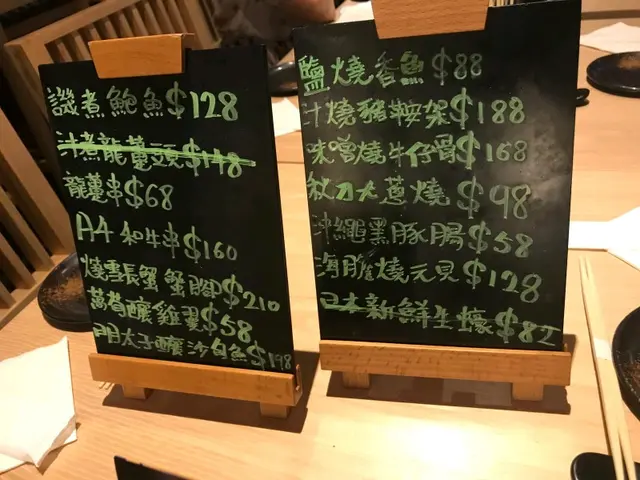 煮鮑魚$128
汁煮龍躉頭$148
龍躉串$68
A4和牛串$160
燒雪長蟹蟹腳$210
釀雞翼$58
明太子釀沙甸魚$198
鹽燒香魚$88
汁燒豬鞍架$188
味噌燒牛仔骨$168
秋刀大蔥燒$98
沖繩黑豚腸$58
海膽燒元貝$128
日本新鮮生蠔$82